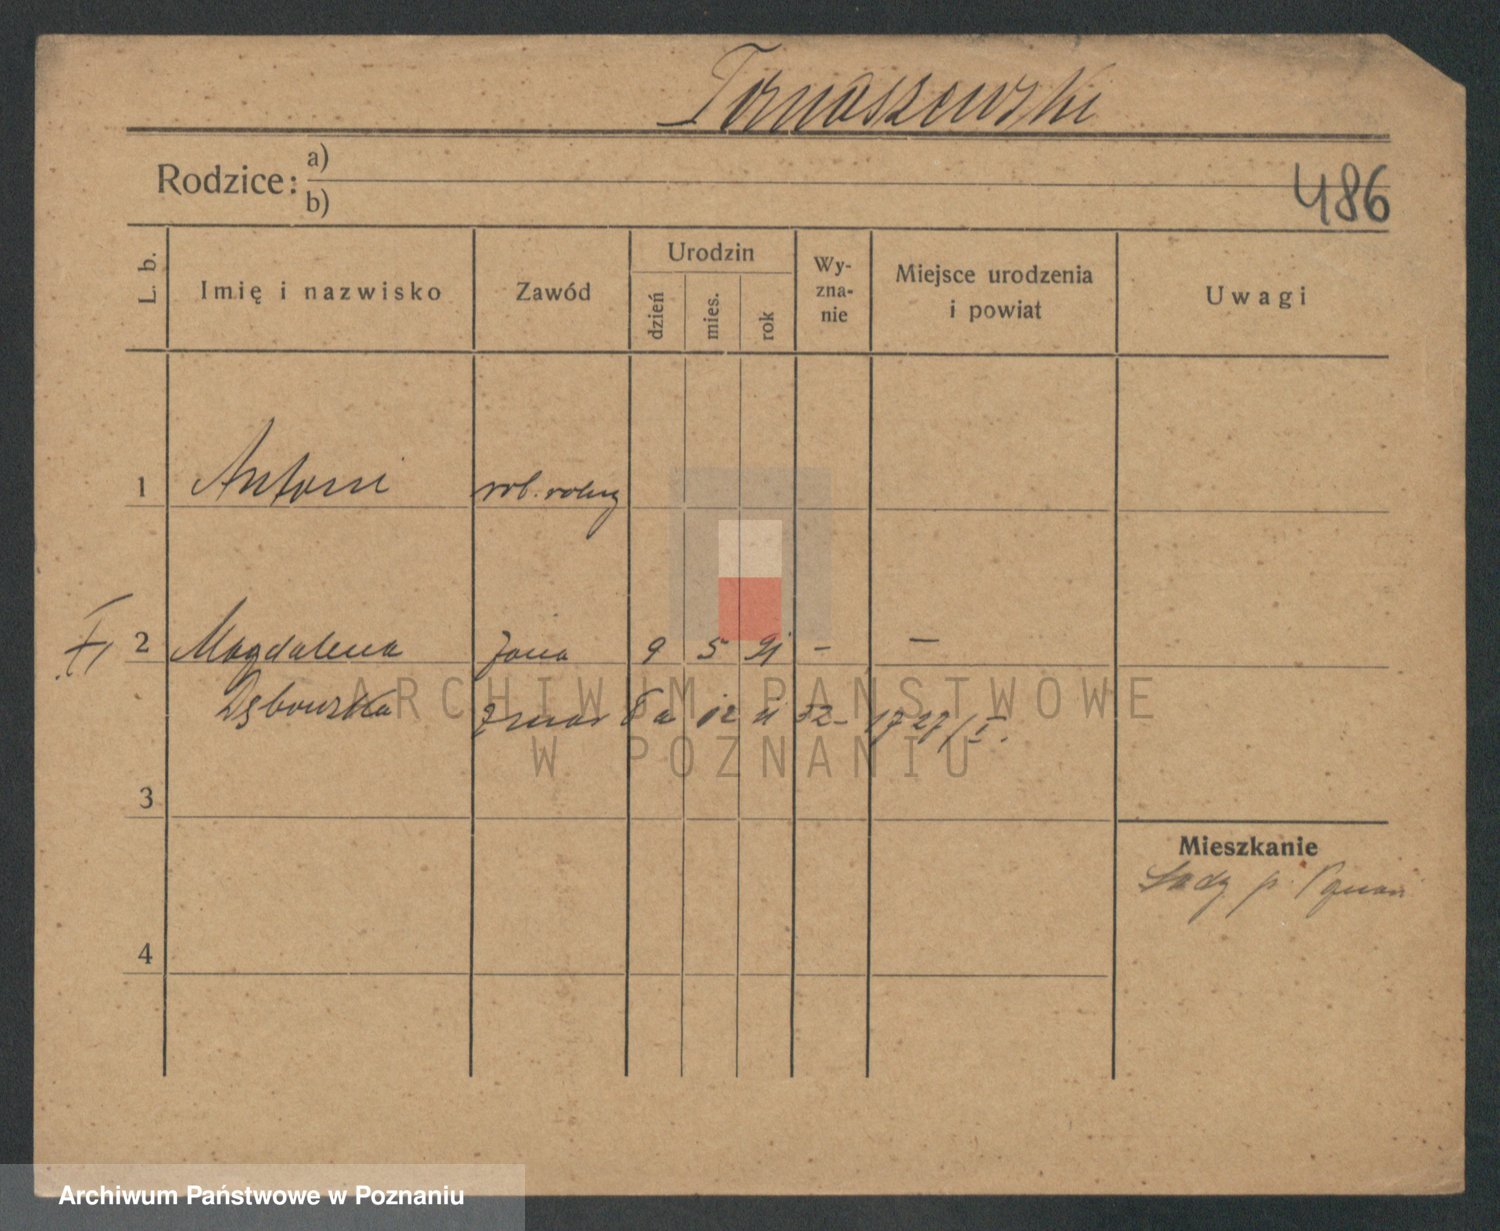 Tomaszewski
Rodzice: a)
b)
486
L. b.
Imię i nazwisko
Zawód
Urodzin
dzień
mies.
rok
Wy-
zna-
nie
Miejsce urodzenia
i powiat
Uwagi
1 Antoni rob. rolny
2 Magdalena żona 9 5 91 - -
Dębowska
3
Mieszkanie
Sady p. Poznań
4
ARCHIWUM PAŃSTWOWE
W POZNANIU
Archiwum Państwowe w Poznaniu